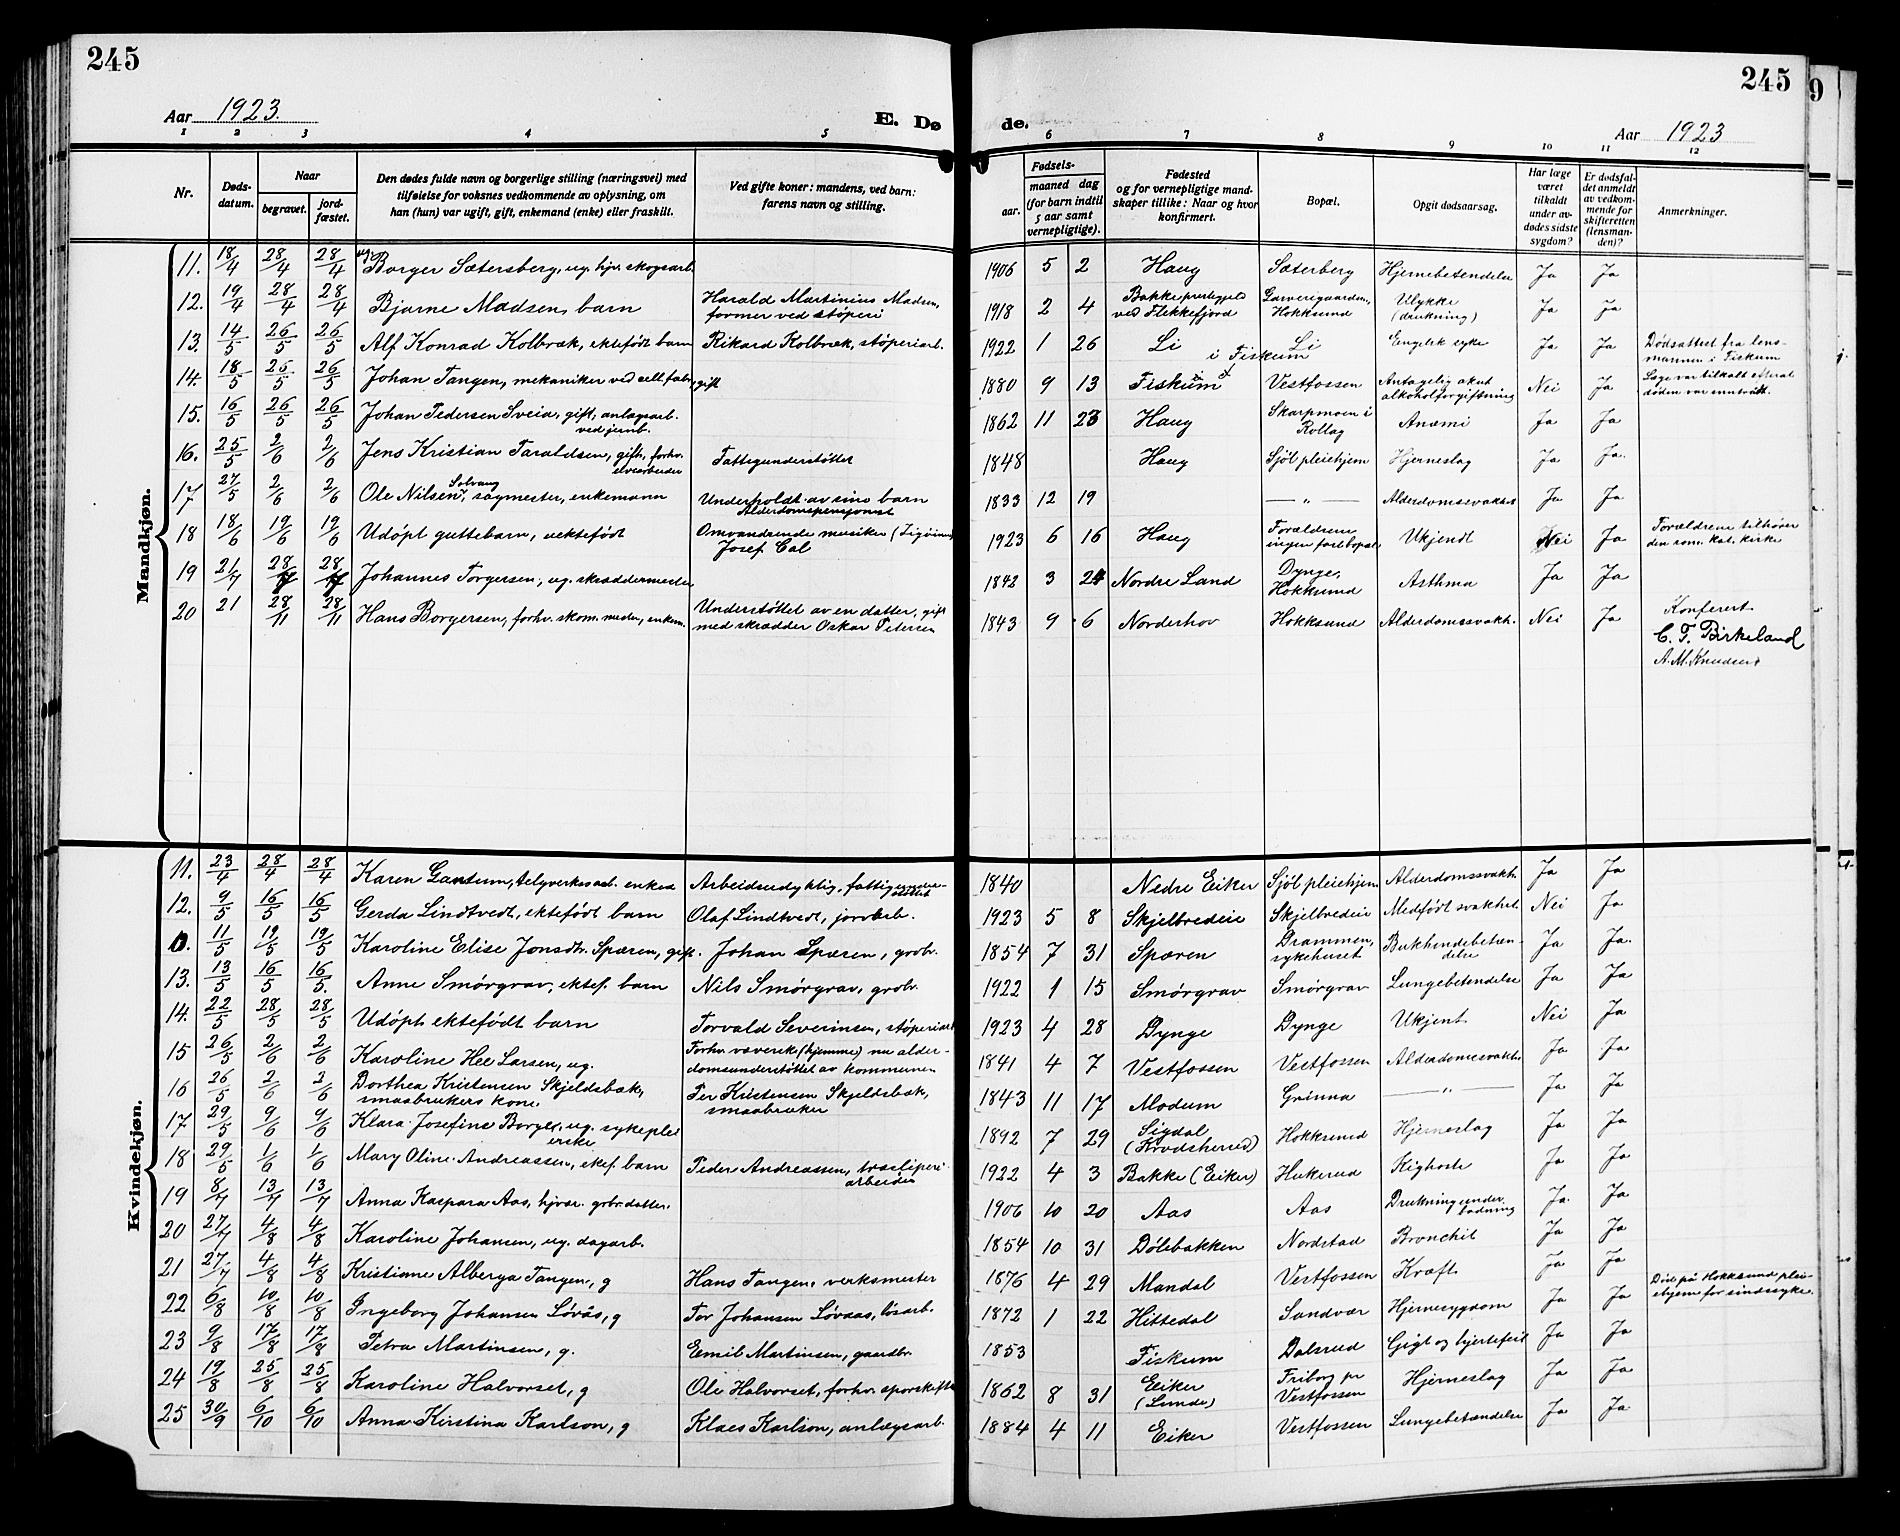 245
Aar 1923.
E. Dø
1 2 3 4 5
Nr.
Døds-
datum.
Naar
begravet.
jord-
fæstet.
Den dødes fulde navn og borgerlige stilling (næringsvei) med
tilføielse for voksnes vedkommende av oplysning, om
han (hun) var ugift, gift, enkemand (enke) eller fraskilt.
Ved gifte koner: mandens, ved barn:
farens navn og stilling.
Mandkjøn.
11. 18/4 28/4 28/4 Borger Sætersberg, ug. hjv. skogsarb.
12. 19/4 28/4 28/4 Bjarne Madsen, barn Harald Martinius Madsen, former ved støperi
13. 14/5 26/5 26/5 Alf Konrad Kolbræk, ektefødt barn Rikard Kolbræk, støperiarb.
14. 18/5 26/5 26/5 Johan Tangen, mekaniker ved cell. fabr., gift
15. 16/5 26/5 26/5 Johan Pedersen Sveia, gift, anlægsarb. ved jernb.
16. 25/5 2/6 2/6 Jens Kristian Taraldsen, gift, forhv. elvearbeider Fattigunderstøttet
17 27/5 2/6 2/6 Ole Nilsen, Solvang sagmester, enkemann Underholdt av sine barn Alderdomspensjonist
18 18/6 19/6 19/6 Udöpt guttebarn, uektefödt Omvandrende musiker (Zigöiner) Josef Cal
19 21/7 28/7 28/7 Johannes Torgersen, ug. skræddermester
20 21 28/11 28/11 Hans Borgersen, forhv. skom. mester, enkem. Understøttet av en datter, gift med skrædder Oskar Petersen
Kvindekjøn.
11. 23/4 28/4 28/4 Karen Gantum, telgverksarb. enke Arbeidsudyktig, fattigunderstøttet
12. 9/5 16/5 16/5 Gerda Lindtvedt, ektefödt barn Olaf Lindtvedt, jernarb.
0. 11/5 19/5 19/5 Karoline Elise Jonsdtr. Spæren, gift. Johan Spæren, grobr.
13. 13/5 16/5 16/5. Anne Smörgrav, ektef. barn Nils Smörgrav, grobr.
14. 22/5 28/5 28/5 Udöpt ektefödt barn Torvald Severinsen, støperiarb
15 26/5 2/6 2/6 Karoline Hee Larsen, ug. Forhv. væverske (hjemme) nu alderdomsunderstöttet av kommunen
16 26/5 2/6 2/6 Dorthea Kristensen Skjeldsbæk, smaabrukers kone. Per Kristensen Skjeldsbæk, smaabruker
17 29/5 9/6 9/6 Klara Josefine Borger, ug. sykepleierske
18 29/5 1/6 1/6 Mary Oline Andreassen, ekef. barn Peder Andreassen, træsliperiarbeider
19 8/7 13/7 13/7 Anna Kaspara Aas, hjvær. grobr. datter.
20 27/7 4/8 4/8 Karoline Johansen, ug. dagarb.
21 27/7 4/8 4/8 Kristiane Alberga Tangen, g Hans Tangen, verksmester
22 6/8 10/8 10/8 Ingeborg Johansen Lövås, g Tor Johansen Lövaas, lösarb.
23 9/8 17/8 17/8 Petra Martinsen, g. Emil Martinsen, gaardbr.
24 19/8 25/8 25/8 Karoline Halvorset, g Ole Halvorset, forhv. sporskifter
25 30/9 6/10 6/10 Anna Kirstina Karlson, g Klaes Karlson, anlægsarb.
245
de.
Aar 1923
6 7 8 9 10 11 12
Fødsels-
aar.
maaned dag
(for barn indtil
5 aar samt
vernepligtige).
Fødested
og for vernepligtige mand-
skaper tillike: Naar og hvor
konfirmert.
Bopæl.
Opgit dødsaarsag.
Har læge
været
tilkaldt
under av-
dødes sidste
sygdom?
Er dødsfal-
det anmeldt
av vedkom-
mende for
skifteretten
(lensman-
den)?
Anmerkninger.
1906 5 2 Haug Sæterberg Hjernebetendelse Ja Ja
1918 2 4 Bakke prestegjeld ved Flekkefjord Garverigaarden, Hokksund Ulykke (drukning) Ja Ja
1922 1 26 Li i Fiskum Li Engelsk syke Ja Ja Dödsattest fra lensmannen i Fiskum
1880 9 13 Fiskum Vestfossen Antagelig akut alkoholforgiftning Nei Ja Læge var tilkalt efterat döden var inntrått.
1862 11 23 Haug Skarpmoen i Rollag Anæmi Ja Ja
1848 Haug Sjöl pleiehjem Hjerneslag Ja Ja.
1833 12 19 — „ — Alderdomssvakhet Ja Ja
1923 6 16 Haug Forældrene ingen fast bopæl Ukjendt Nei Ja Forældrene tilhörer den rom. kat. kirke
1842 3 24 Nordre Land Dynge, Hokksund Asthma Ja Ja
1843 9 6 Norderhov Hokksund Alderdomssvakh. Nei Ja Konferert
C. F. Birkeland
A. M. Knudsen
1840 Nedre Eiker Sjöl pleiehjem Alderdomssvakh. Ja Ja
1923 5 8 Skjelbredeie Skjelbredeie Medfödt svakhet Nei Ja
1854 7 31 Spæren Drammen, sykehuset Bukhindebetændelse Ja Ja.
1922 1 15 Smörgrav Smörgrav Lungebetendelse Ja Ja
1923 4 28 Dynge Dynge Ukjent Nei Ja
1841 4 7 Vestfossen Vestfossen Alderdomssvakh. Ja Ja
1843 11 17 Modum Grinna — „ — Ja Ja
1892 7 29 Sigdal (Krodsherred) Hokksund Hjerneslag Ja Ja
1922 4 3 Bakke (Eiker) Hukerud Kighoste Ja Ja
1906 10 20 Aas Aas Drukning under badning Ja. Ja
1854 10 31 Dölebakken Nordstad Bronchit Ja Ja
1876 4 29 Mandal Vestfossen Kræft Ja Ja
1872 1 22 Hittedal Sandvær Hjernesygdom Ja Ja Död på Hokksund pleiehjem for sindssyke.
1853 Fiskum Dalsrud Gigt og hjertefeil Ja Ja
1862 8 31 Eiker (Lunde) Friborg pr Vestfossen Hjerneslag Ja Ja
1884 4 11 Eiker Vestfossen Lungebetændelse Ja Ja